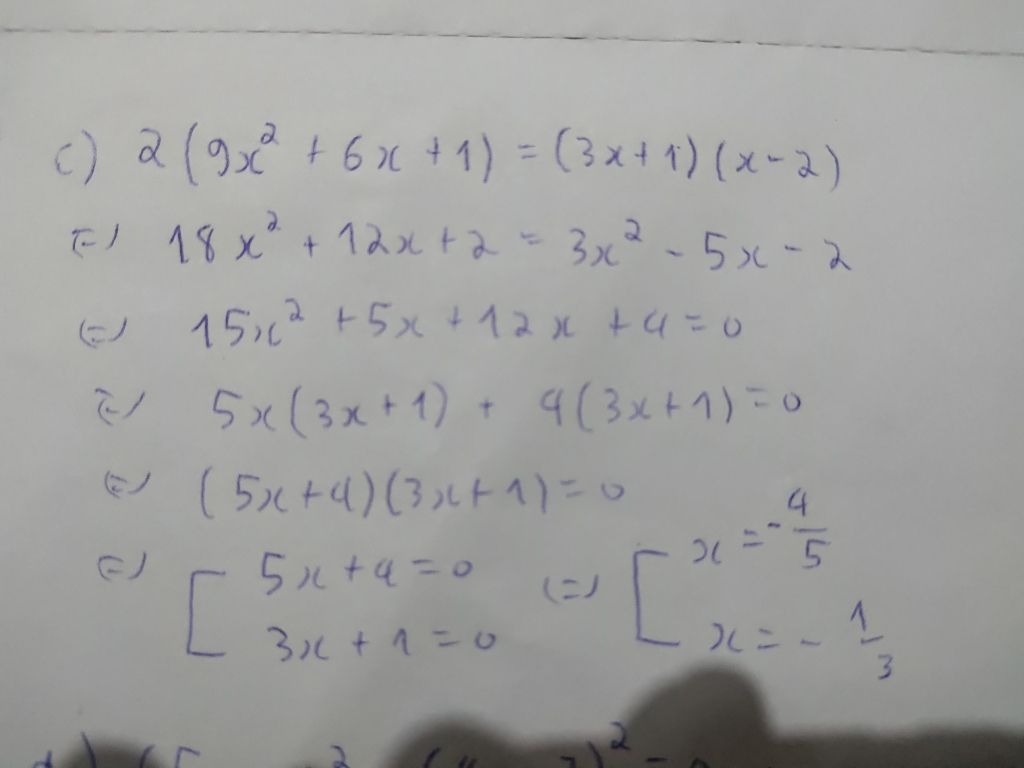 c) 2(9x² + 6x + 1) = (3x+1)(x-2)
(=) 18x² + 12x + 2 = 3x² - 5x - 2
(=) 15x² + 5x + 12x + 4 = 0
(=) 5x(3x+1) + 4(3x+1) = 0
(=) (5x+4)(3x+1) = 0
(=) [ 5x+4 = 0 (=) [ x = -4/5
3x+1 = 0 x = -1/3